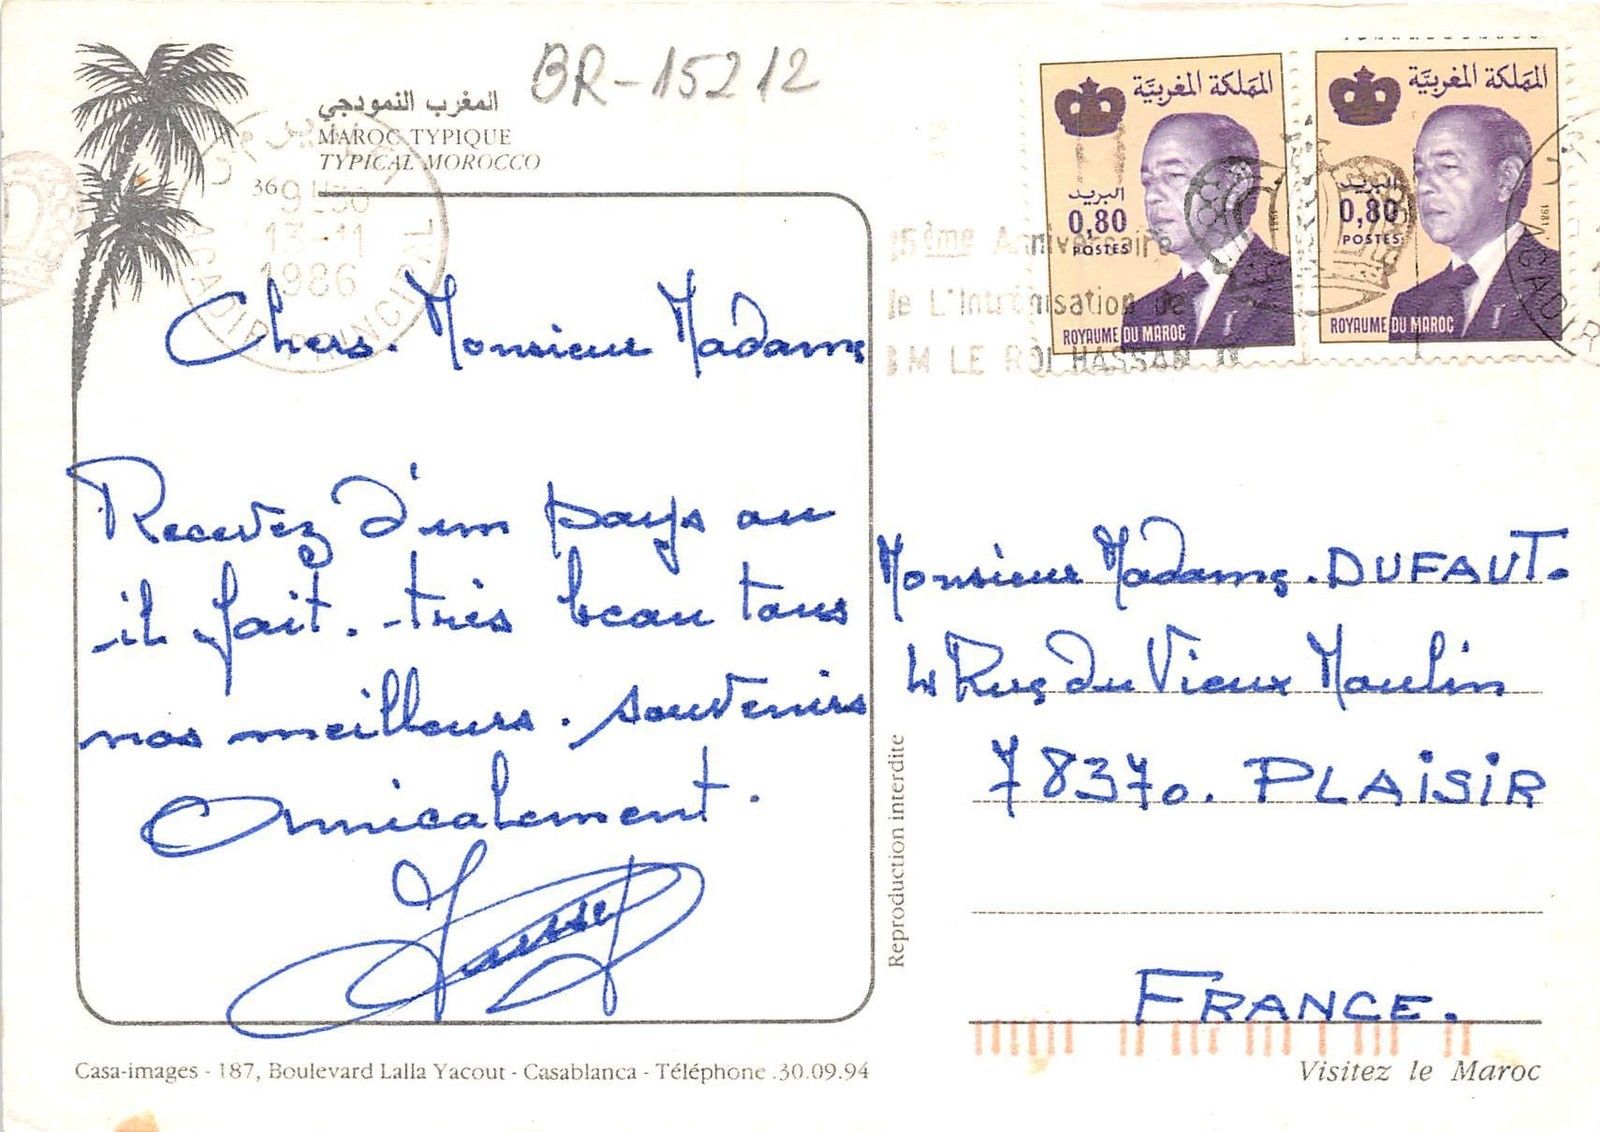 BR-15212
المغرب النموذجي
MAROC TYPIQUE
TYPICAL MOROCCO
36
13-11
1986
AGADIR PRINCIPAL
Chers. Monsieur Madame
Recevez d'un pays ou
il fait. très beau tous
nos meilleurs. souvenirs
Amicalement.
Casa-images - 187, Boulevard Lalla Yacout - Casablanca - Téléphone .30.09.94
Reproduction interdite
5ème Anniversaire
de L'Intronisation de
S M LE ROI HASSAN II
المملكة المغربية
البريد
0,80
POSTES
1981
ROYAUME DU MAROC
المملكة المغربية
البريد
0,80
POSTES
1981
ROYAUME DU MAROC
AGADIR
Monsieur Madame. DUFAUT.
4 Rue du Vieux Moulin
78370. PLAISIR
FRANCE.
Visitez le Maroc